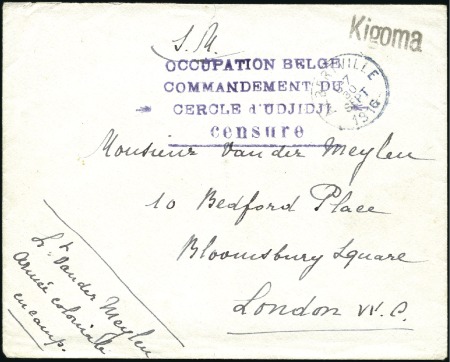 S.M.
Kigoma
OCCUPATION BELGE
COMMANDEMENT DU
CERCLE d'UDJIDJI
censure
ALBERTVILLE
7
SEPT
1916
Monsieur Van der Meylen
10 Bedford Place
Bloomsbury Square
London W.C.
Lt. Van der Meylen
armée coloniale
en camp.